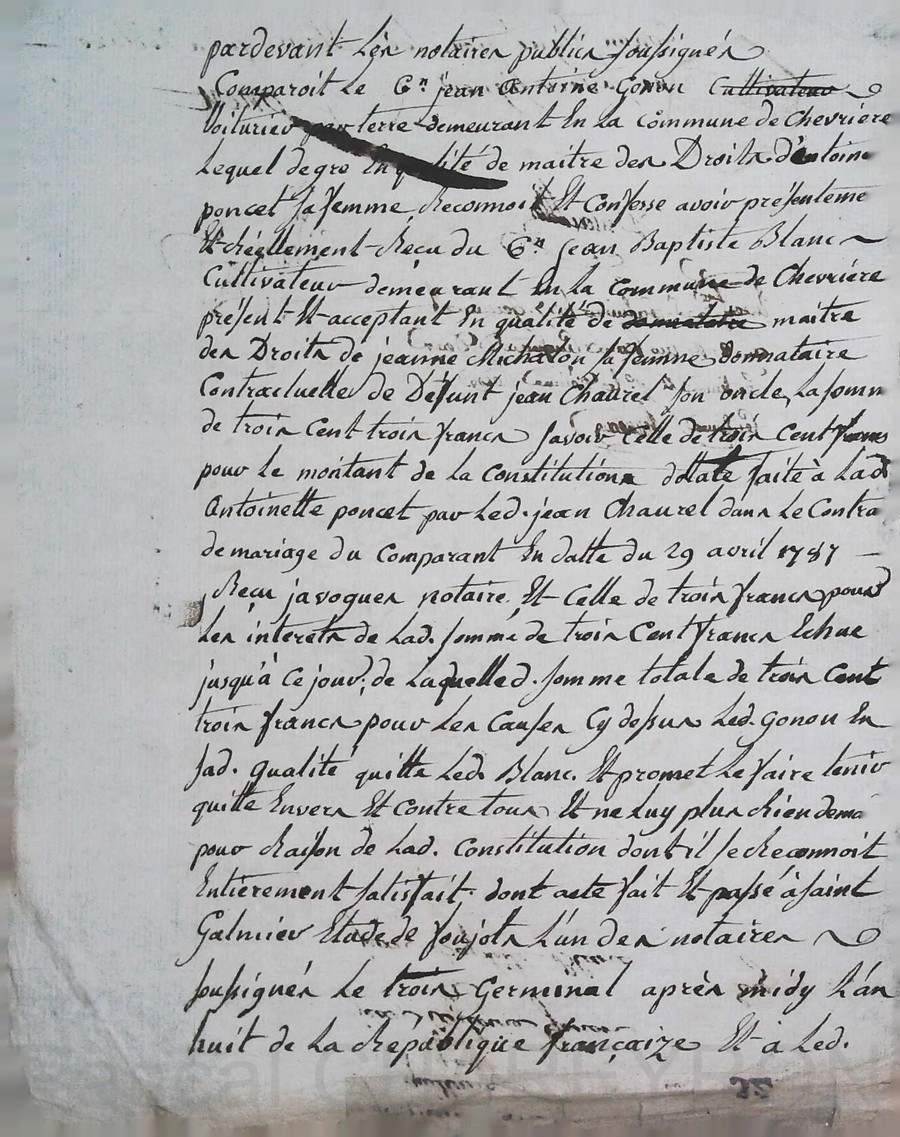 pardevant Les notaires publics soussignés
Comparoit Le Cn jean Antoine Gonon Cultivateur
Voiturier par terre demeurant En La commune de Chevriére
Lequel degre En qualité de maitre des Droits d'antoine
poncet sa femme, Reconnoit Et Confesse avoir présenteme
Et Réellement Recu du Cn jean Baptiste Blanc
Cultivateur demeurant En La commune de Chevriére
présent Et acceptant En qualité de maitre
des Droits de jeanne Michalon sa femme donnataire
Contractuelle de Défunt jean Chaurel son oncle, La somm
de trois Cent trois francs Savoir Celle de trois Cent francs
pour Le montant de La Constitution dottale faite à Lad
Antoinette poncet par Led. jean Chaurel dans Le Contra
de mariage du Comparant En datte du 29 avril 1787
Recu javogues notaire. Et Celle de trois francs pour
Les interets de Lad. somme de trois Cent francs Echue
jusqu'à Ce jour, de Laquelled. somme totale de trois Cent
trois francs pour Les Causes Cy dessus Led. Gonon En
Sad. qualité quitte Led. Blanc. Et promet Le faire tenir
quitte Envers Et Contre tous Et ne Luy plus Rien dema
pour Raison de Lad. Constitution dont il se Reconnoit
Entièrement satisfait; dont acte fait Et passé à saint
Galmier Etude de foujols L'un des notaires
soussignés Le trois Germinal après midy L'an
huit de La République françaize Et a Led.
32